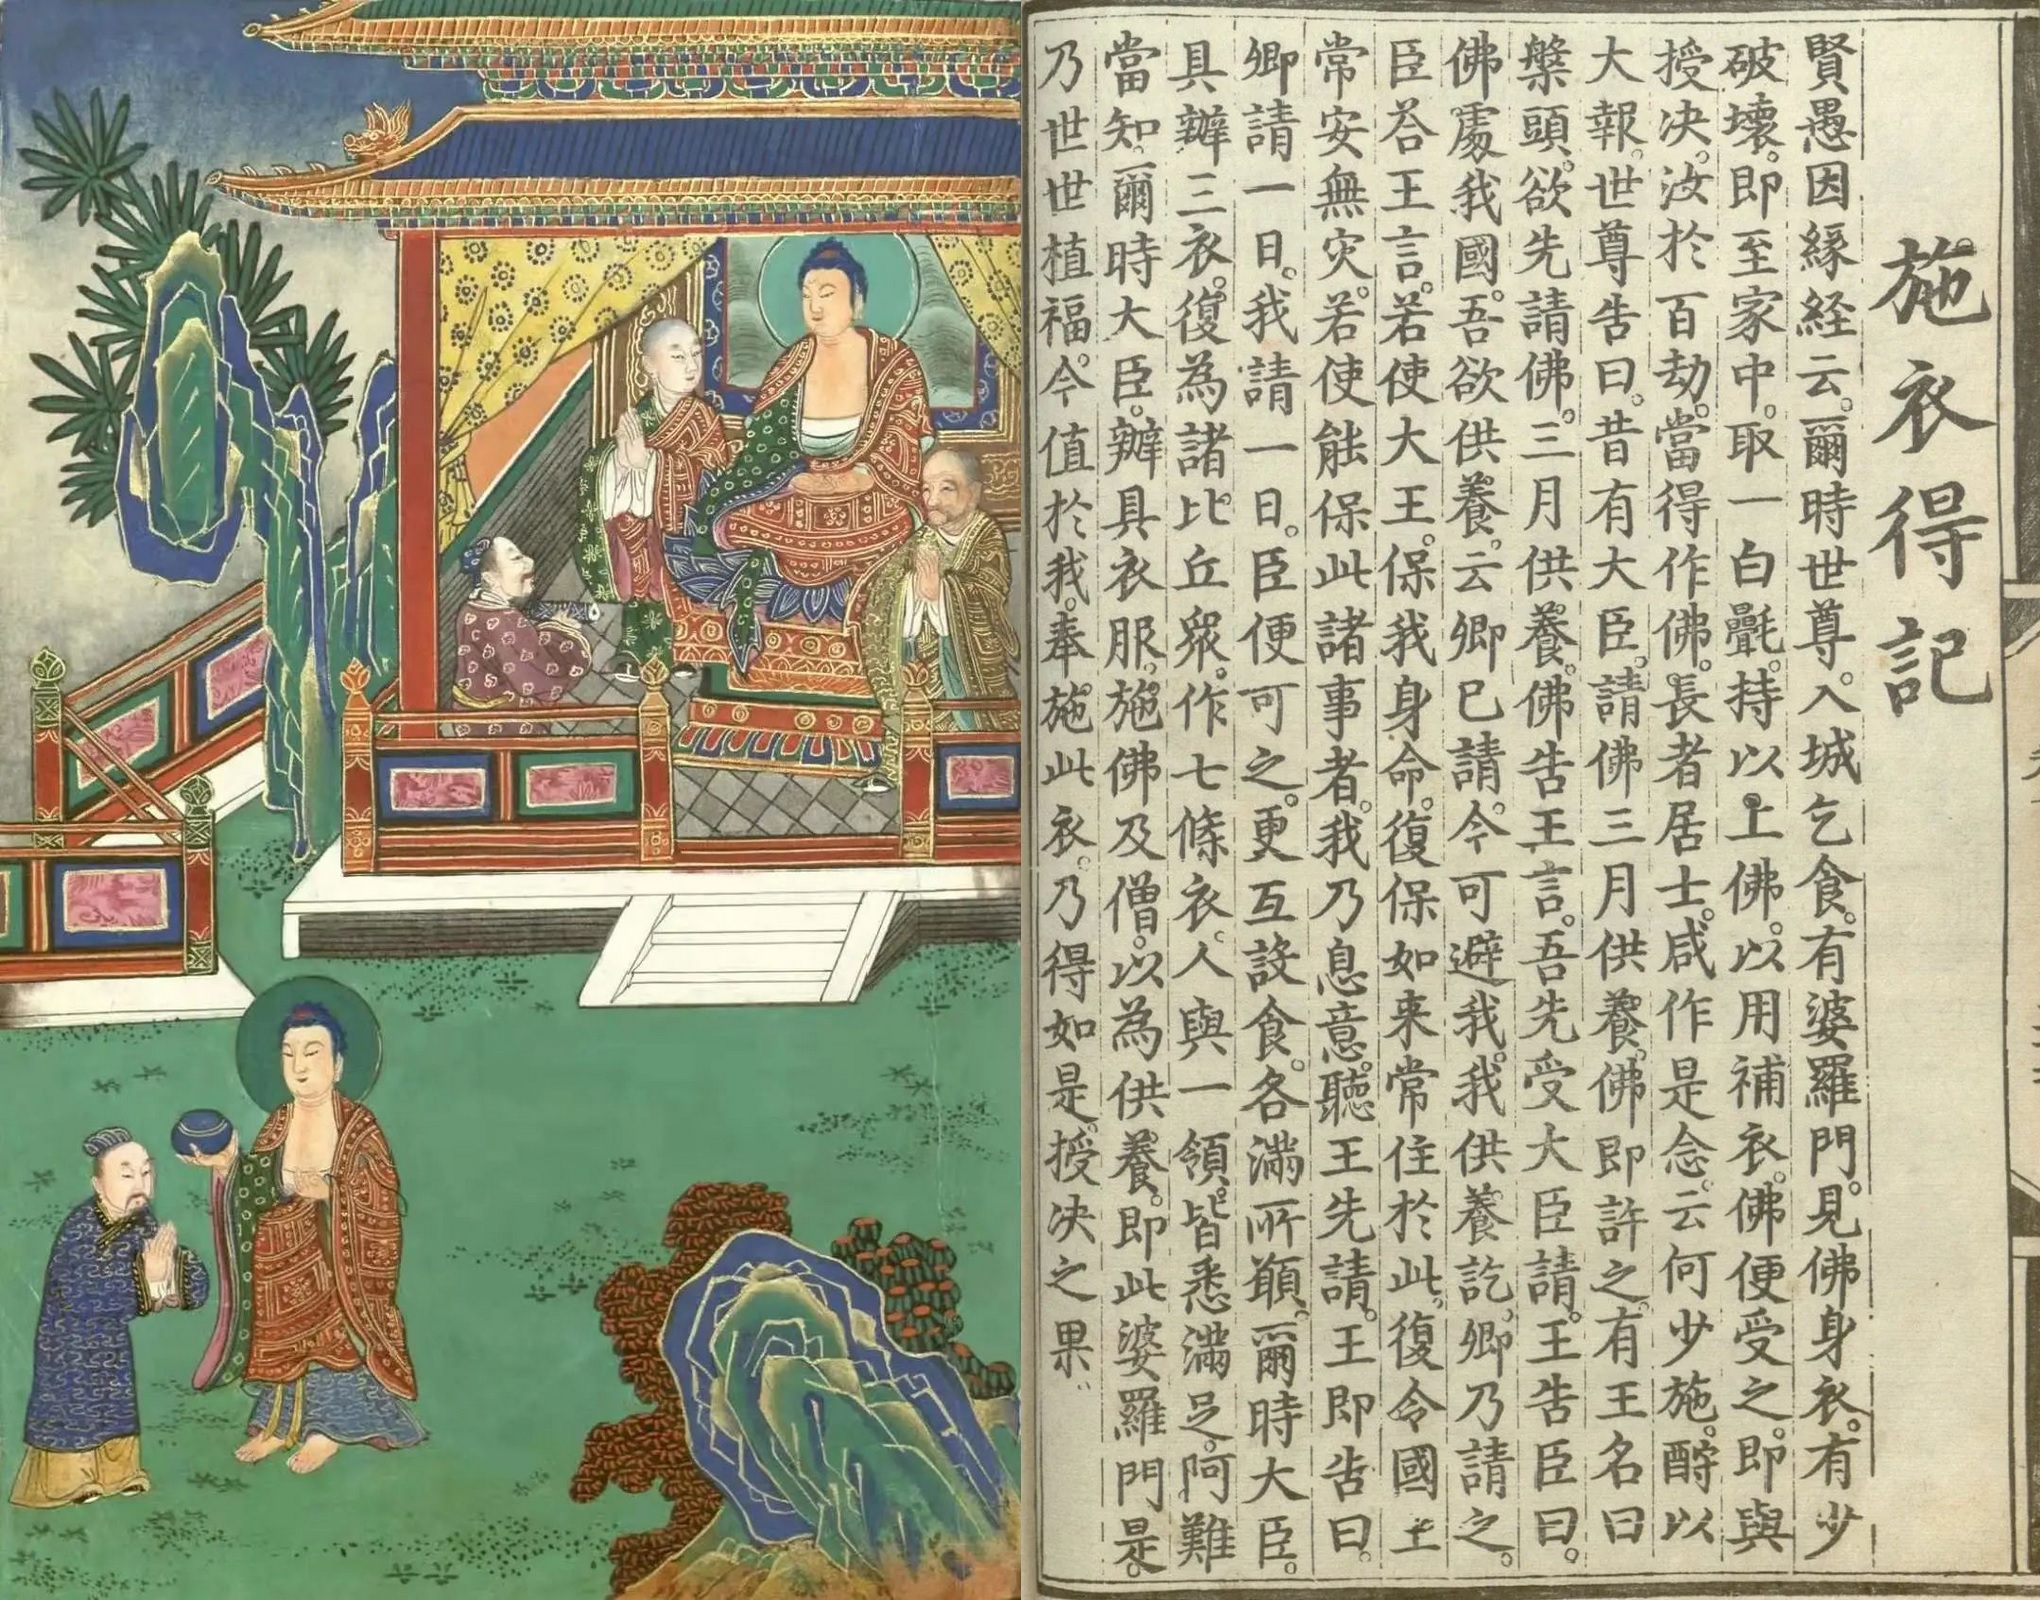 施衣得記
賢愚因縁経云。爾時世尊。入城乞食。有婆羅門。見佛身衣。有少
破壞。即至家中。取一白㲲。持以上佛。以用補衣。佛便受之。即與
授决。汝於百劫。當得作佛。長者居士。咸作是念。云何少施。酧以
大報。世尊告曰。昔有大臣。請佛三月供養。佛即許之。有王名曰
槃頭。欲先請佛。三月供養。佛告王言。吾先受大臣請。王告臣曰。
佛處我國。吾欲供養。云卿已請。今可避我。我供養訖。卿乃請之。
臣荅王言。若使大王。保我身命。復保如来常住於此。復令國土
常安無灾。若使能保此諸事者。我乃息意。聽王先請。王即告曰。
卿請一日。我請一日。臣便可之。更互設食。各滿所願。爾時大臣。
具辦三衣。復為諸比丘衆。作七條衣。人與一領。皆悉滿足。阿難
當知。爾時大臣。辦具衣服。施佛及僧。以為供養。即此婆羅門是。
乃世世植福。今值於我。奉施此衣。乃得如是。授决之果